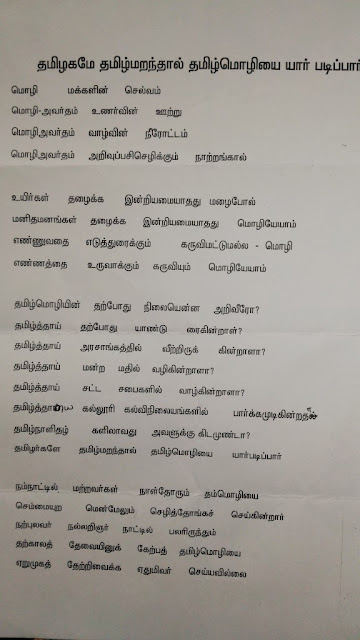 தமிழகமே தமிழ்மறந்தால் தமிழ்மொழியை யார் படிப்பார்
மொழி மக்களின் செல்வம்
மொழி-அவர்தம் உணர்வின் ஊற்று
மொழிஅவர்தம் வாழ்வின் நீரோட்டம்
மொழிஅவர்தம் அறிவுப்பசிசெழிக்கும் நாற்றங்கால்
உயிர்கள் தழைக்க இன்றியமையாதது மழைபோல்
மனிதமனங்கள் தழைக்க இன்றியமையாதது மொழியேயாம்
எண்ணுவதை எடுத்துரைக்கும் கருவிமட்டுமல்ல - மொழி
எண்ணத்தை உருவாக்கும் கருவியும் மொழியேயாம்
தமிழ்மொழியின் தற்போது நிலையென்ன அறிவீரோ?
தமிழ்த்தாய் தற்போது யாண்டு ரைகின்றாள்?
தமிழ்த்தாய் அரசாங்கத்தில் வீற்றிருக் கின்றாளா?
தமிழ்த்தாய் மன்ற மதில் வழிகின்றாளா?
தமிழ்த்தாய் சட்ட சபைகளில் வாழ்கின்றாளா?
கல்லூரி கல்விநிலையங்களில் பார்க்கமுடிகின்றதா
தமிழ்நாளிதழ் களிலாவது அவளுக்கு கிடமுண்டா?
தமிழர்களே தமிழ்மறந்தால் தமிழ்மொழியை யார்படிப்பார்
நம்நாட்டில் மற்றவர்கள் நாள்தோரும் தம்மொழியை
செம்மையுற மென்மேலும் செழித்தோங்கச் செய்கின்றார்
நற்புலவர் நல்லறிஞர் நாட்டில் பலரிருந்தும்
தற்காலத் தேவையினுக் கேற்பத் தமிழ்மொழியை
ஏறுமுகத் தேற்றிவைக்க ஏதுமிவர் செய்யவில்லை